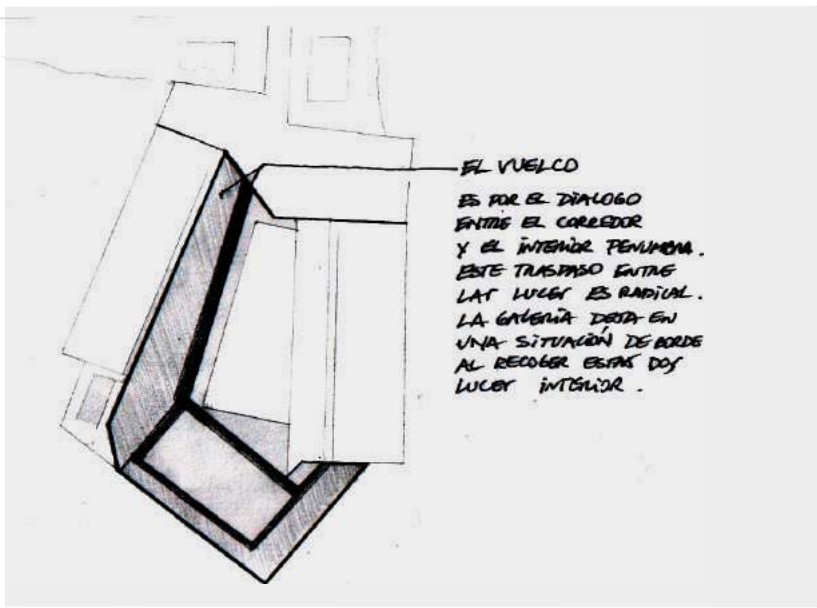 EL VUELCO
ES POR EL DIALOGO
ENTRE EL CORREDOR
Y EL INTERIOR PENUMBRA.
ESTE TRASPASO ENTRE
LAS LUCES ES RADICAL.
LA GALERÍA DEJA EN
UNA SITUACIÓN DE BORDE
AL RECOGER ESTAS DOS
LUCES INTERIOR.